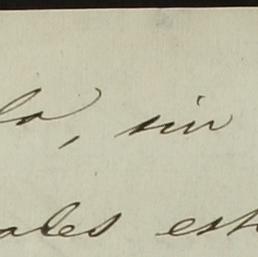 la, sin
ales est